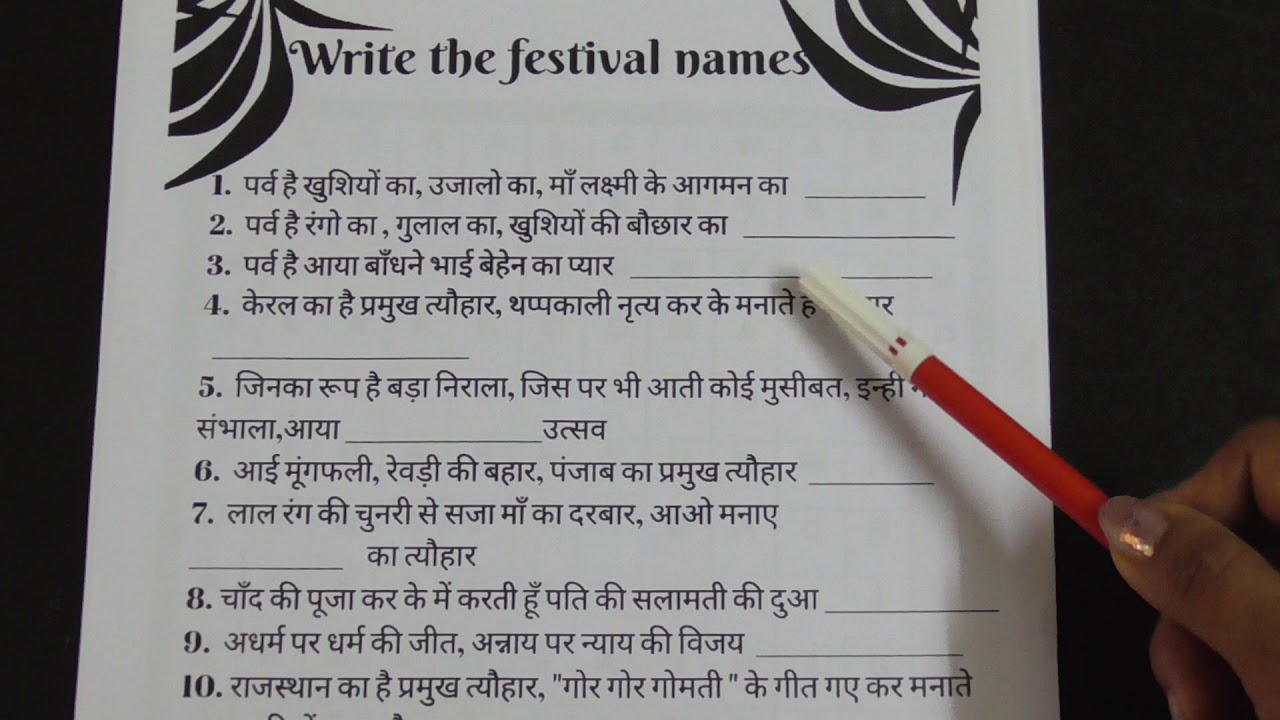 Write the festival names
1. पर्व है खुशियों का, उजालो का, माँ लक्ष्मी के आगमन का __________
2. पर्व है रंगो का , गुलाल का, खुशियों की बौछार का __________
3. पर्व है आया बाँधने भाई बेहेन का प्यार __________
4. केरल का है प्रमुख त्यौहार, थप्पकाली नृत्य कर के मनाते
__________
5. जिनका रूप है बड़ा निराला, जिस पर भी आती कोई मुसीबत, इन्ही
संभाला,आया __________ उत्सव
6. आई मूंगफली, रेवड़ी की बहार, पंजाब का प्रमुख त्यौहार __________
7. लाल रंग की चुनरी से सजा माँ का दरबार, आओ मनाए
__________ का त्यौहार
8. चाँद की पूजा कर के में करती हूँ पति की सलामती की दुआ __________
9. अधर्म पर धर्म की जीत, अन्नाय पर न्याय की विजय __________
10. राजस्थान का है प्रमुख त्यौहार, "गोर गोर गोमती " के गीत गए कर मनाते